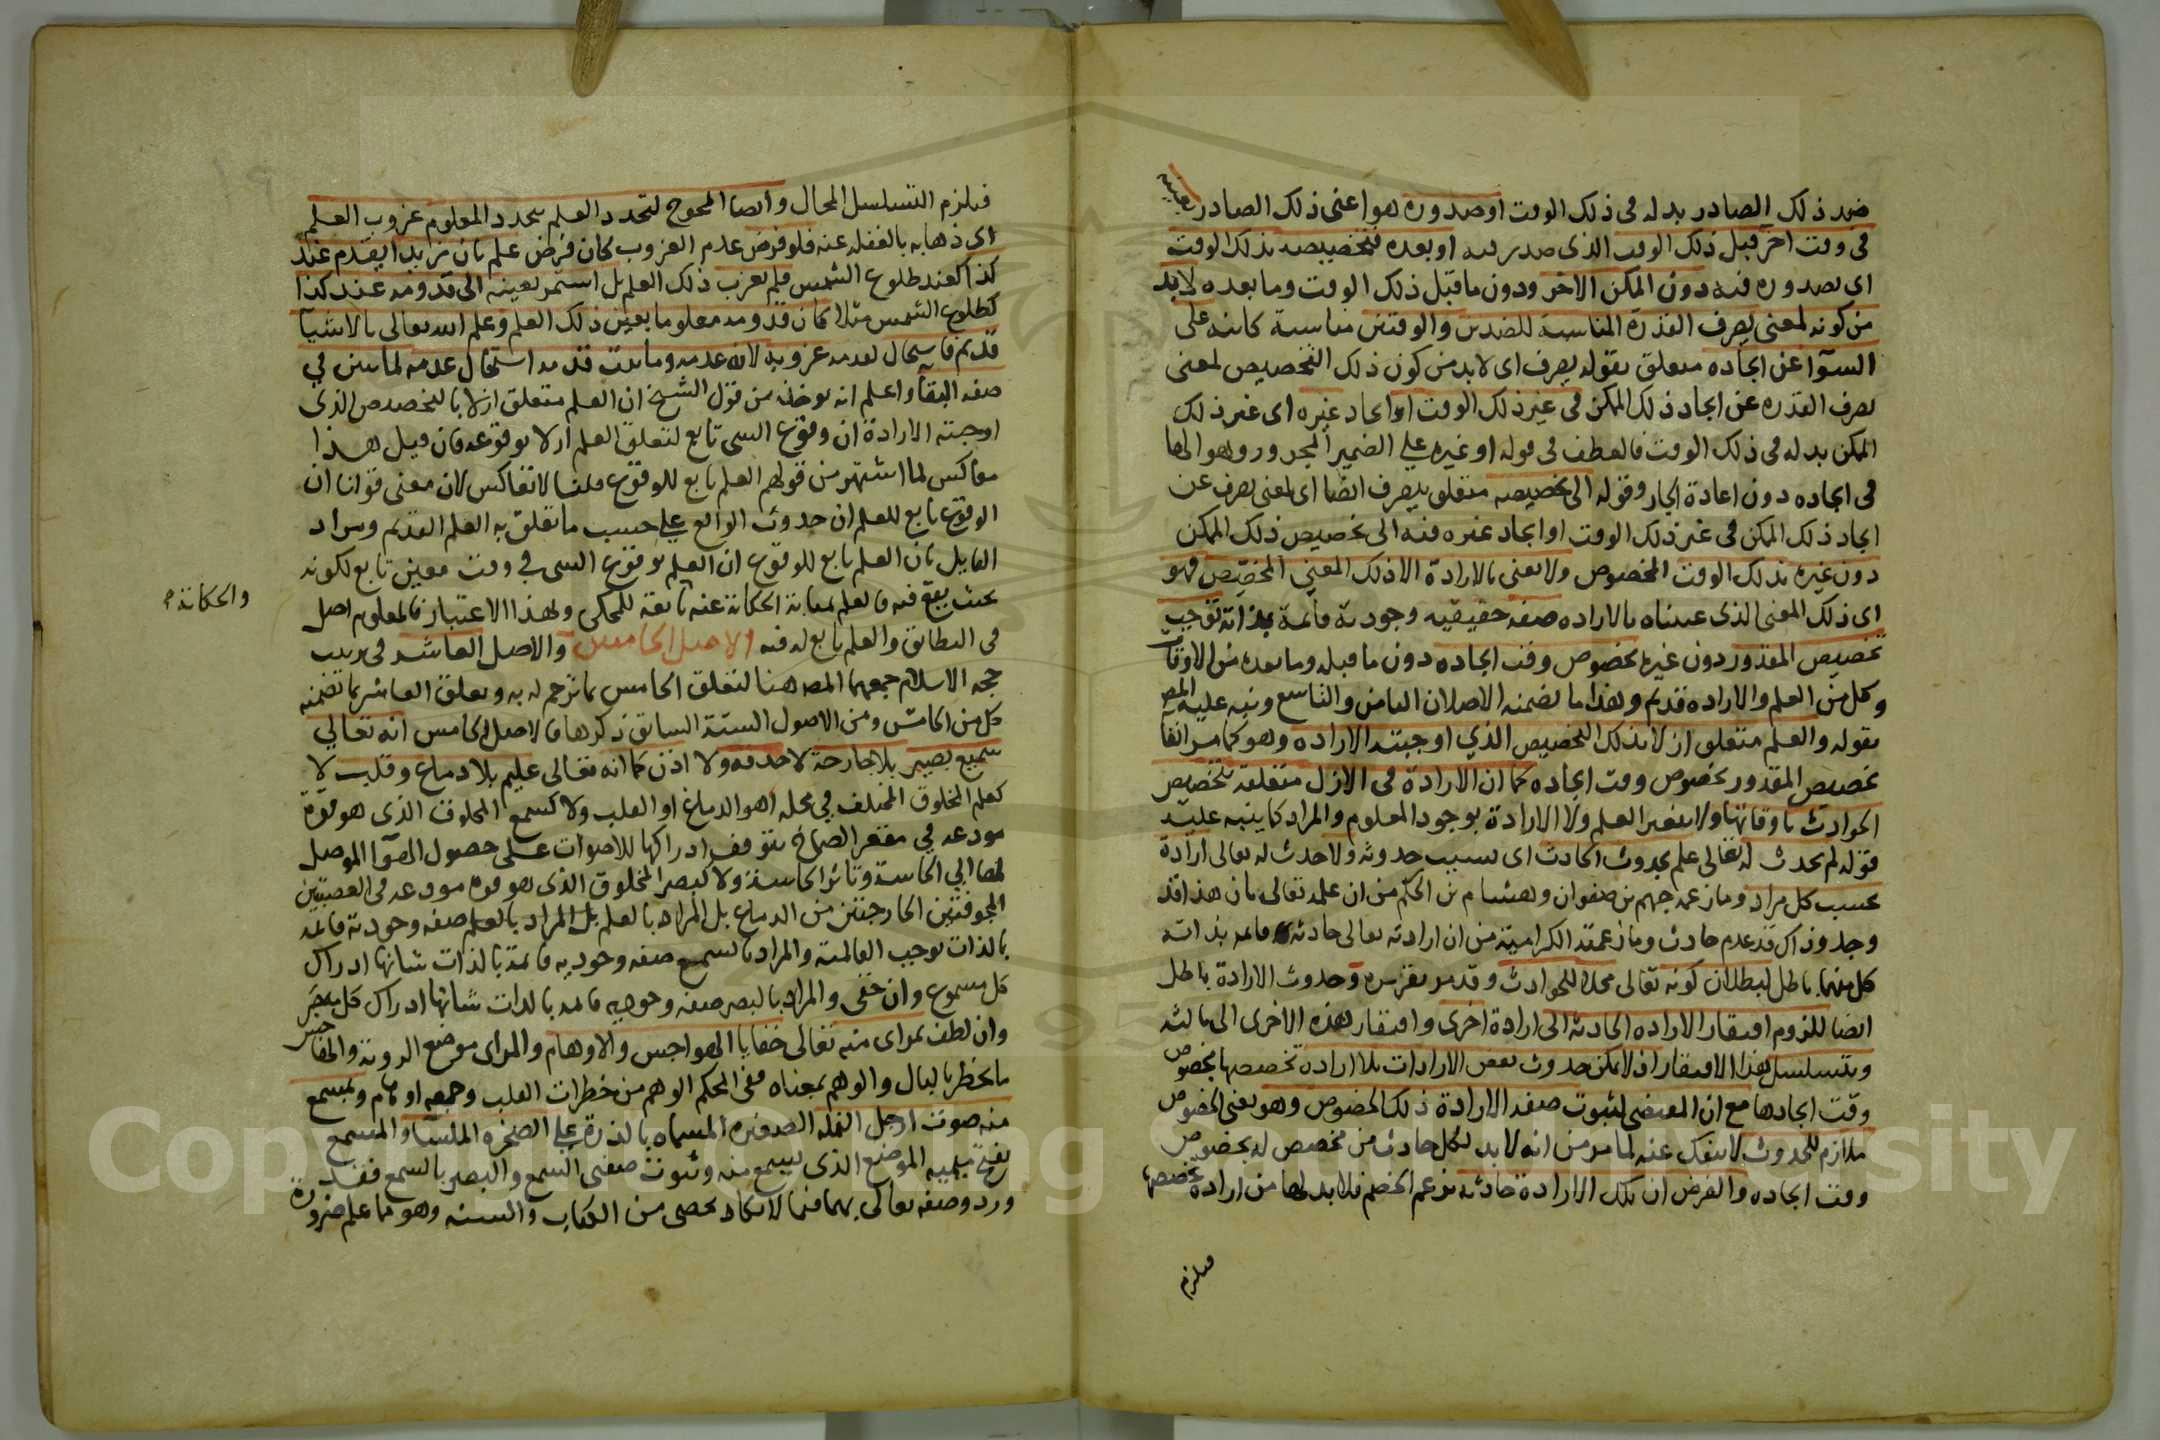 ضد ذلك الصادر بدله في ذلك الوقت او صدوره هوا عنى ذلك الصادر بعينه
في وقت آخر قبل ذلك الوقت الذى صدر فيه او بعده فتخصيصه بذلك الوقت
اى بصدوره فيه دون الممكن الآخر ودون ما قبل ذلك الوقت وما بعده لابد
من كونه لمعنى يصرف القدرة المناسبة للضدين والوقتين مناسبة كائنة على
السوآ عن ايجاده متعلق بقوله يصرف اى لابد من كون ذلك التخصيص لمعنى
يصرف القدرة عن ايجاد ذلك الممكن في غير ذلك الوقت او ايجاد غيره اى غير ذلك
الممكن بدله في ذلك الوقت فالعطف في قوله او غيره على الضمير المجرور وهو الها
في ايجاده دون اعادة الجار وقوله الى تخصيصه متعلق بيصرف ايضا اى لمعنى يصرف عن
ايجاد ذلك الممكن في غير ذلك الوقت او ايجاد غيره فيه الى تخصيص ذلك الممكن
دون غيره بذلك الوقت المخصوص ولا يعنى بالارادة الا ذلك المعنى المخصص فهو
اى ذلك المعنى الذى عيناه بالاراده صفة حقيقيه وجودية قائمة بذاته توجب
تخصيص المقدور دون غيره بخصوص وقت ايجاده دون ما قبله وما بعده من الاوقات
وكل من العلم والاراده قديم وهذا ما تضمنه الاصلان الثامن والتاسع ونبه عليه المص
بقوله والعلم متعلق ازلا بذلك التخصيص الذي اوجبته الاراده وهو كما مر آنفا
تخصيص المقدور بخصوص وقت ايجاده كما ان الارادة في الازل متعلقة بتخصيص
الحوادث باوقاتها ولا يتغير العلم ولا الارادة بوجود المعلوم والمراد كما ينبه عليه
قوله لم يحدث له تعالى علم بحدوث الحادث اى بسبب حدوثه ولا حدث له تعالى ارادة
بحسب كل مراد وما زعمه جهم بن صفوان وهشام بن الحكم من ان علمه تعالى بان هذا قد
وجد وذاك قد عدم حادث وما زعمته الكرامية من ان ارادته تعالى حادثه قائمه بذاته
كل منهما باطل لبطلان كونه تعالى محلا للحوادث وقد مر تقريره وحدوث الارادة باطل
ايضا للزوم افتقار الاراده الحادثة الى ارادة اخرى وافتقار هذه الاخرى الى ثالثة
ويتسلسل هذا الافتقار اذ لا يمكن حدوث بعض الارادات بلا ارادة تخصصها بخصوص
وقت ايجادها مع ان المقتضى لثبوت صفة الارادة ذلك الخصوص وهو يعنى الخصوص
ملازم للحدوث لا ينفك عنه لما مر من انه لابد لكل حادث من مخصص له بخصوص
وقت ايجاده والفرض ان تلك الارادة حادثه بزعم الخصم فلابد لها من ارادة تخصصها
فيلزم
فيلزم التسلسل المحال وايضا المحوج لتجدد العلم بتجدد المعلوم عزوب العلم
اى ذهابه بالغفله عنه فلو فرض عدم العزوب كان فرض علم بان زيدا يقدم عند
كذا كعند طلوع الشمس فلم يعزب ذلك العلم بل استمر بعينه الى قدومه عند كذا
كطلوع الشمس مثلا كان قدومه معلوما بعين ذلك العلم وعلم الله تعالى بالاشيآ
قديم فاستحال لقدمه عزوبه لانه عدمه وما ثبت قدمه استحال عدمه لما تبين في
صفة البقآ واعلم انه يوخذ من قول الشيخ ان العلم متعلق ازلا بالتخصيص الذى
اوجبته الارادة ان وقوع الشى تابع لتعلق العلم ازلا بوقوعه فان قيل هذا
معاكس لما اشتهر من قولهم العلم تابع للوقوع قلنا لا تعاكس لان معنى قولنا ان
الوقوع تابع للعلم ان حدوث الواقع على حسب ما تعلق به العلم القديم ومراد
القايل بان العلم تابع للوقوع ان العلم بوقوع الشى في وقت معين تابع لكونه
بحيث يقع فيه فالعلم بمثابة الحكاية عنه تابعة للمحكى ولهذا الاعتبار فالمعلوم اصل
والحكاية
في التطابق والعلم تابع له فيه الاصل الخامس والاصل العاشر في ترتيب
حجه الاسلام جمعهما المص هنا لتعلق الخامس بما ترجم له به وتعلق العاشر بما تضمنه
كل من الخامس ومن الاصول الستة السابق ذكرها فالاصل الخامس انه تعالي
سميع بصير بلا جارحة لا حدقه ولا اذن كما انه تعالى عليم بلا دماغ وقلب لا
كعلم المخلوق المختلف في محله اهو الدماغ او القلب ولا كسمع المخلوق الذى هو قوة
مودعه في مقعر الصماخ يتوقف ادراكها للاصوات على حصول الهوآ الموصل
لها الي الحاسة وتاثر الحاسة ولا كبصر المخلوق الذى هو قوة مودعه في العصبتين
المجوفتين الخارجتين من الدماغ بل المراد بالعلم بل المراد بالعلم صفه وجودية قائمه
بالذات توجب العالمية والمراد بالسمع صفه وجوديه قائمة بالذات شانها ادراك
كل مسموع وان خفى والمراد بالبصر صفه وجوديه قائمه بالذات شانها ادراك كل مبصر
وان لطف بمراى منه تعالى خفايا الهواجس والاوهام والمراى موضع الروية والهاجس
ما يخطر بالبال والوهم بمعناه ففى المحكم الوهم من خطرات القلب وجمعه اوهام وبمسمع
منه صوت ارجل النمله الصغيره المسماه بالذرة على الصخرة الملسآ والمسمع
بفتح ميميه الموضع الذى يسمع منه وثبوت صفتى السمع والبصر بالسمع فقد
ورد وصفه تعالى بهما فيما لا يكاد يحصى من الكتاب والسنه وهو مما علم ضرورة
Copyright © King Saud University